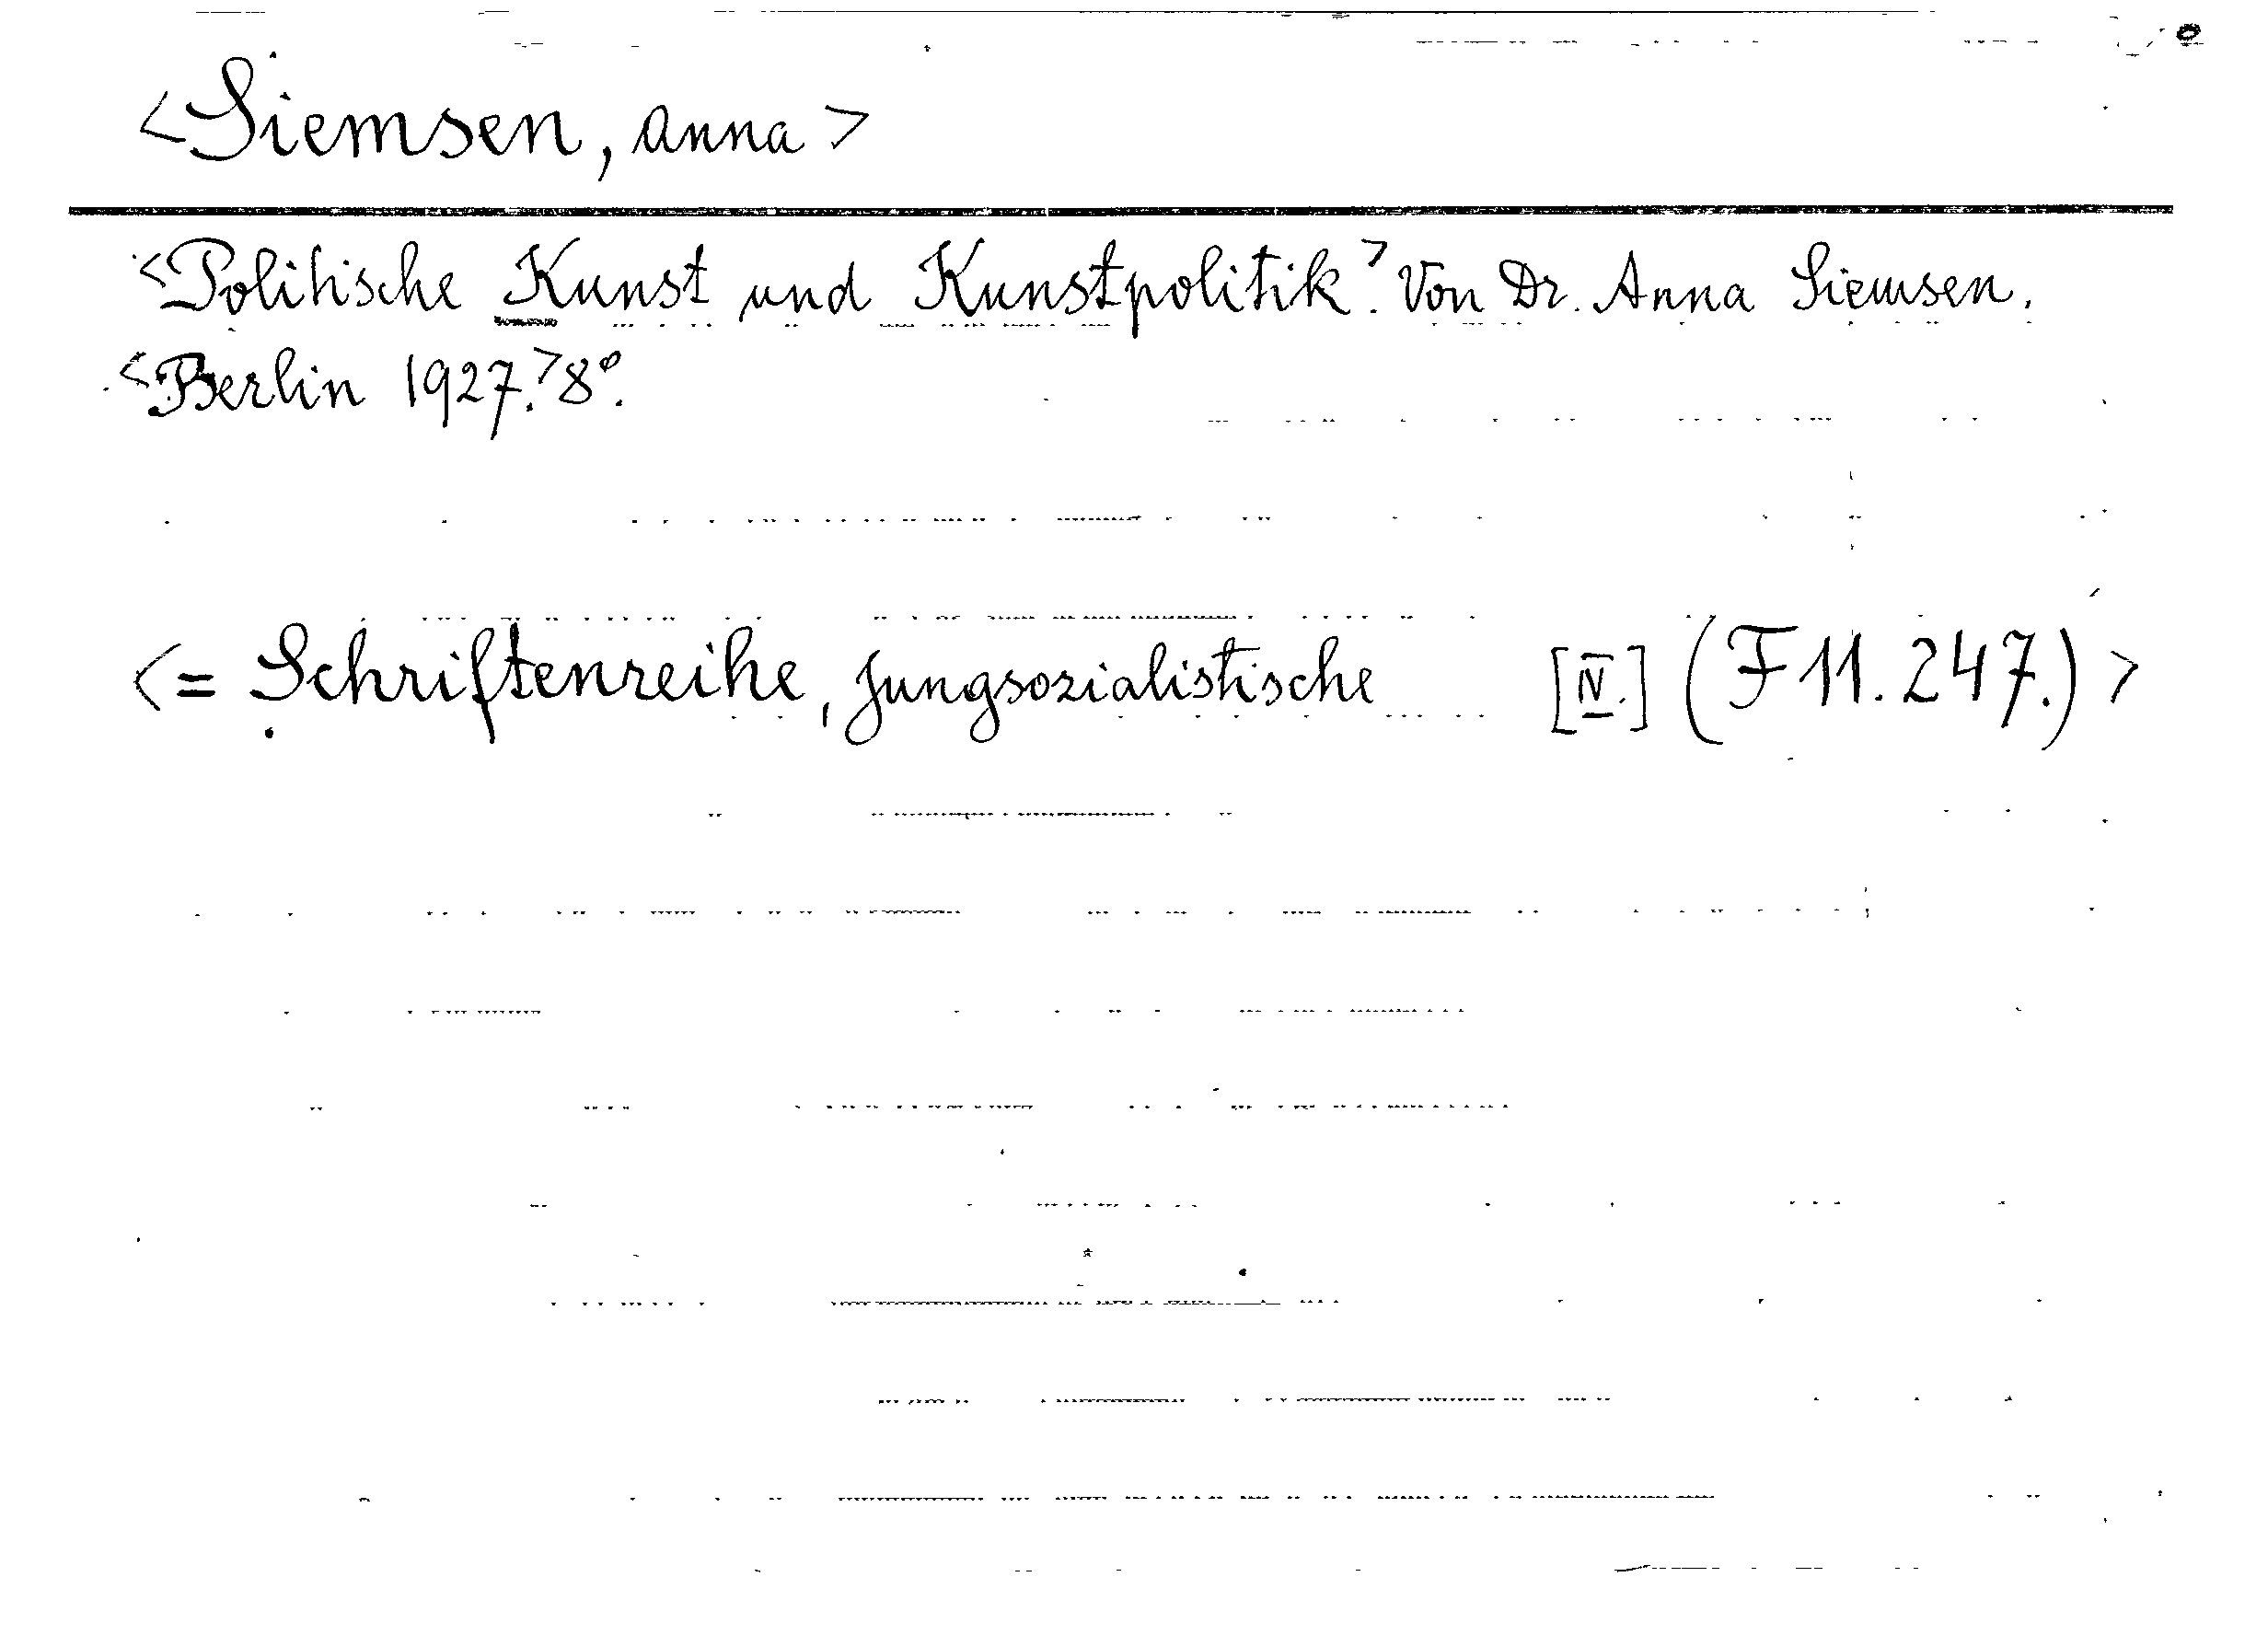 <Siemsen, Anna>
<Politische Kunst und Kunstpolitik.> Von Dr. Anna Siemsen.
<Berlin 1927.> 8°.
<= Schriftenreihe, Jungsozialistische [IV.] (F 11. 247.)>